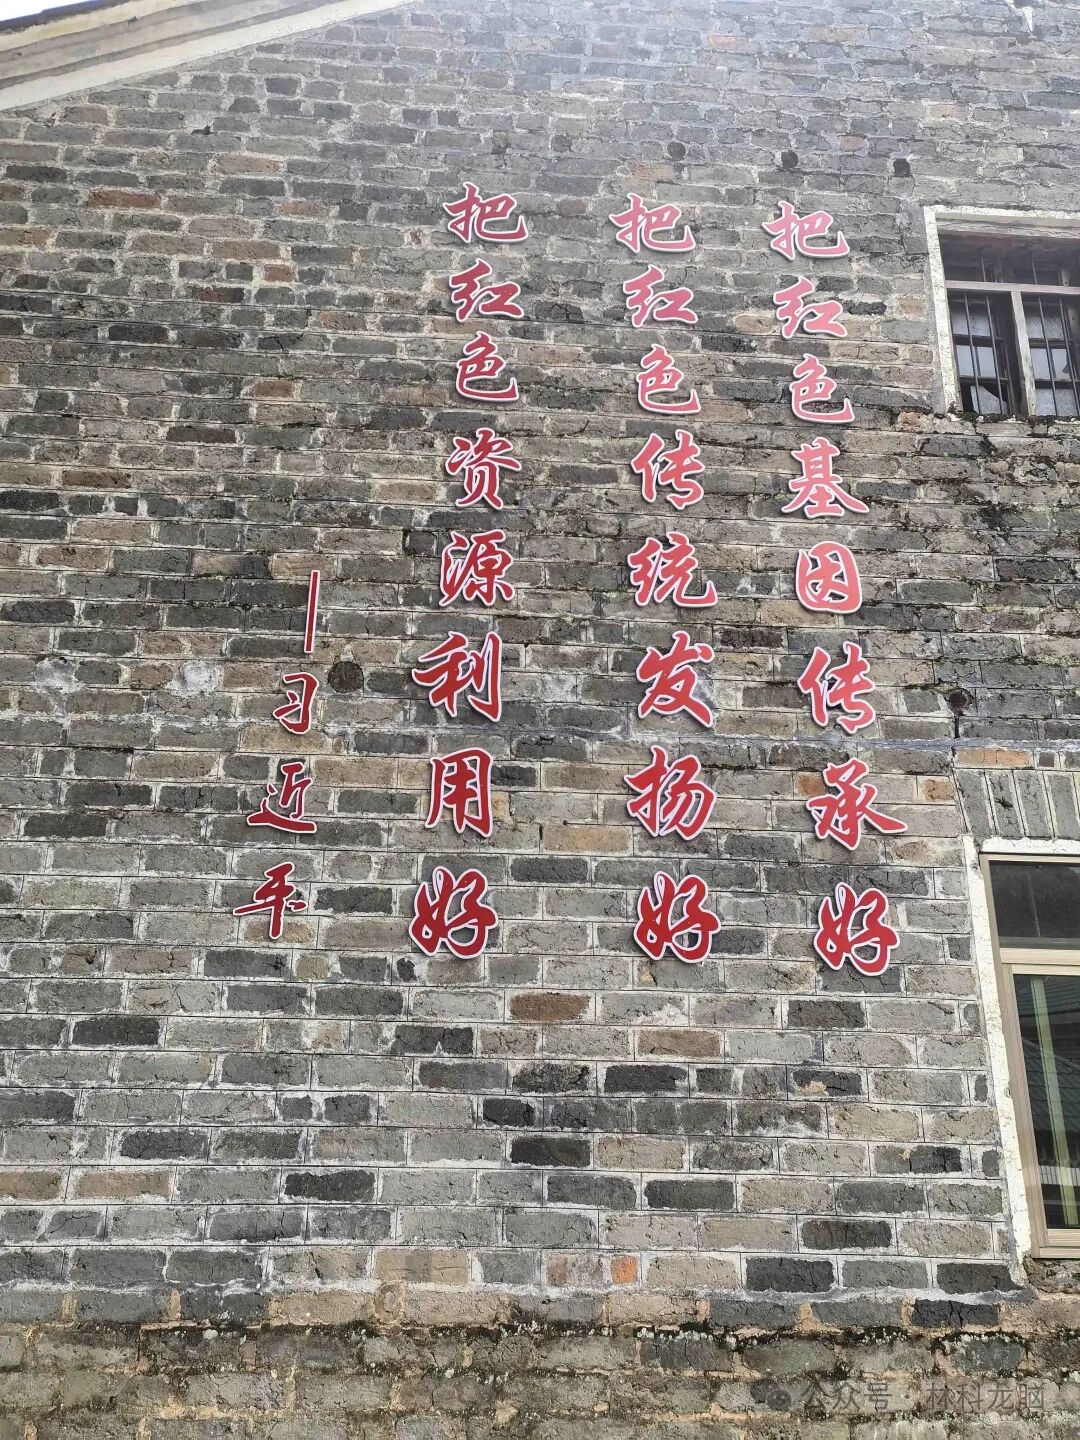 把红色基因传承好
把红色传统发扬好
把红色资源利用好
—习近平
公众号·林科龙脑